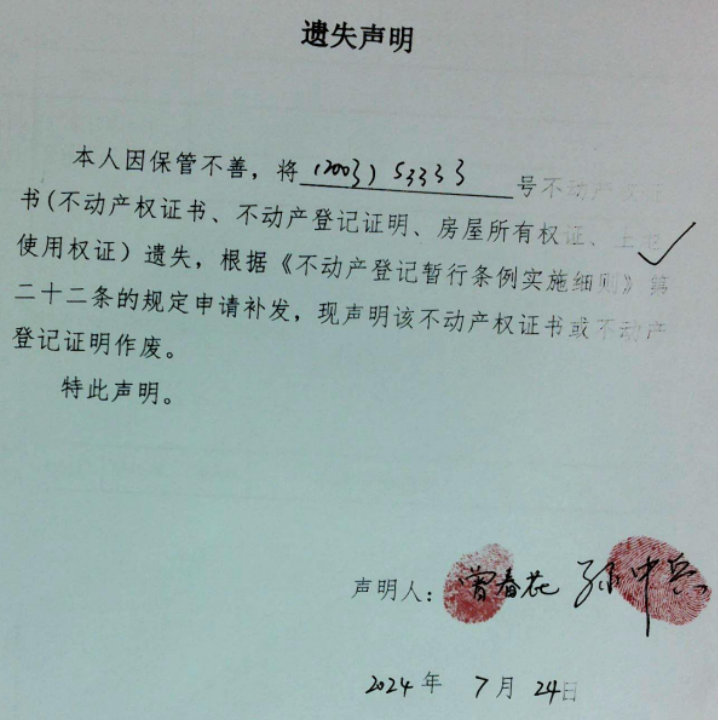 遗失声明
本人因保管不善，将 (2003) 53333 号不动产权证
书(不动产权证书、不动产登记证明、房屋所有权证、土地
使用权证）遗失，根据《不动产登记暂行条例实施细则》第
二十二条的规定申请补发，现声明该不动产权证书或不动产
登记证明作废。
特此声明。
声明人：曾春花 孙中兵
2024年 7月 24日